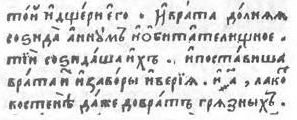 то́й и҆дще́ри е҆го̀ . И҆врата̀ до́лнѧѧ
соѕида̀ а҆ннꙋ́мъ и҆ѻби́тателиѕионое .
ті́и соѕида́ша и҆́хъ . и҆поста́виша
врата̀ и҆заво́ры и҆вері́ѧ . и҆ , а҃ , лако́
востенѣ̀ да́же довра́тъ грѧ́зныхъ .